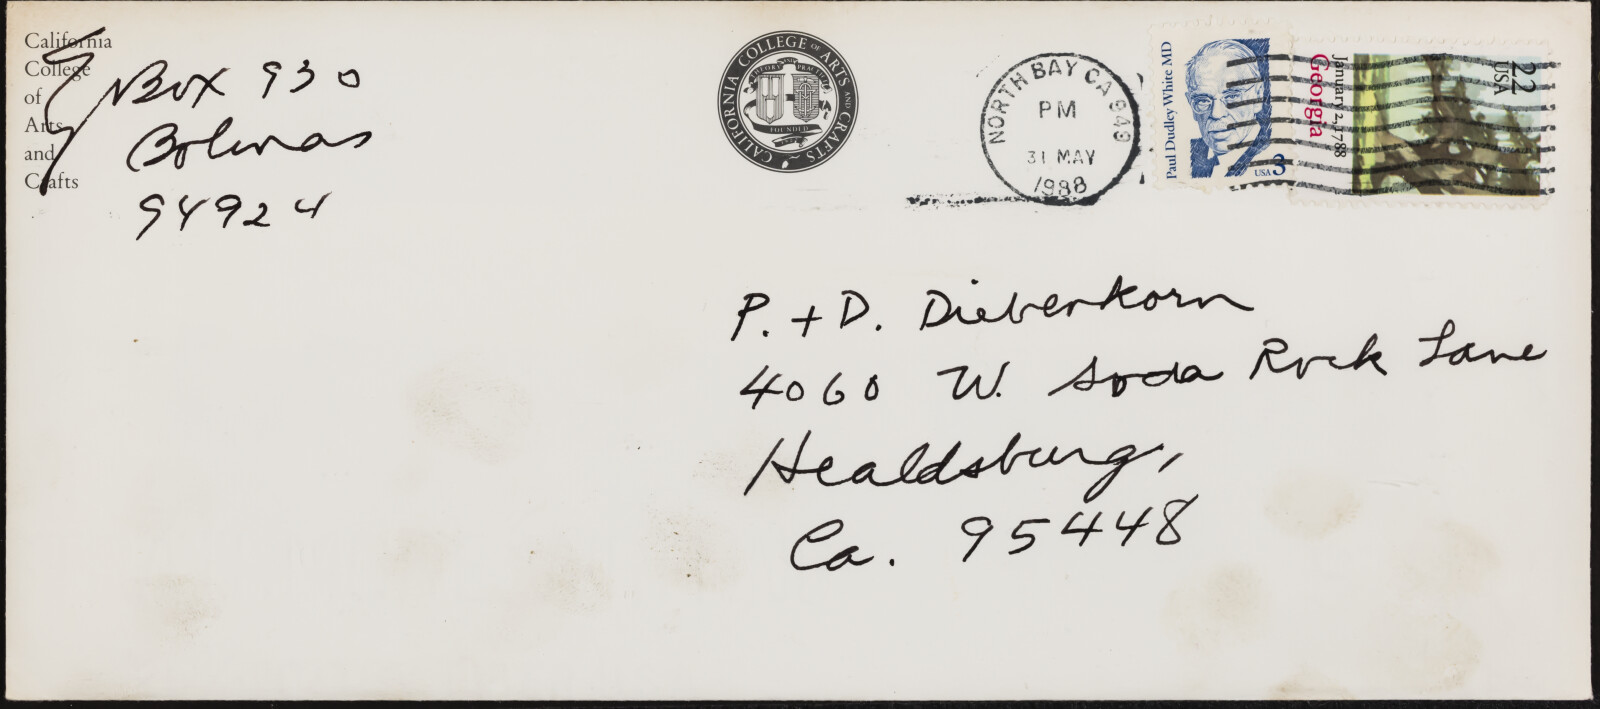 California
College
of
Arts
and
Crafts
Box 930
Bolinas
94924
CALIFORNIA COLLEGE OF ARTS AND CRAFTS
THEORY AND PRACTICE
FOUNDED
NORTH BAY CA 949
PM
31 MAY
1988
Paul Dudley White MD
USA 3
Georgia
January 2, 1788
22
USA
P. + D. Diebenkorn
4060 W. Soda Rock Lane
Healdsburg,
Ca. 95448